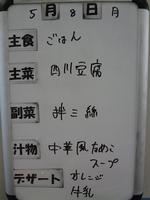 5月8日 月
主食 ごはん
主菜 四川豆腐
副菜 拌三絲
汁物 中華風なめこ
スープ
デザート オレンジ
牛乳